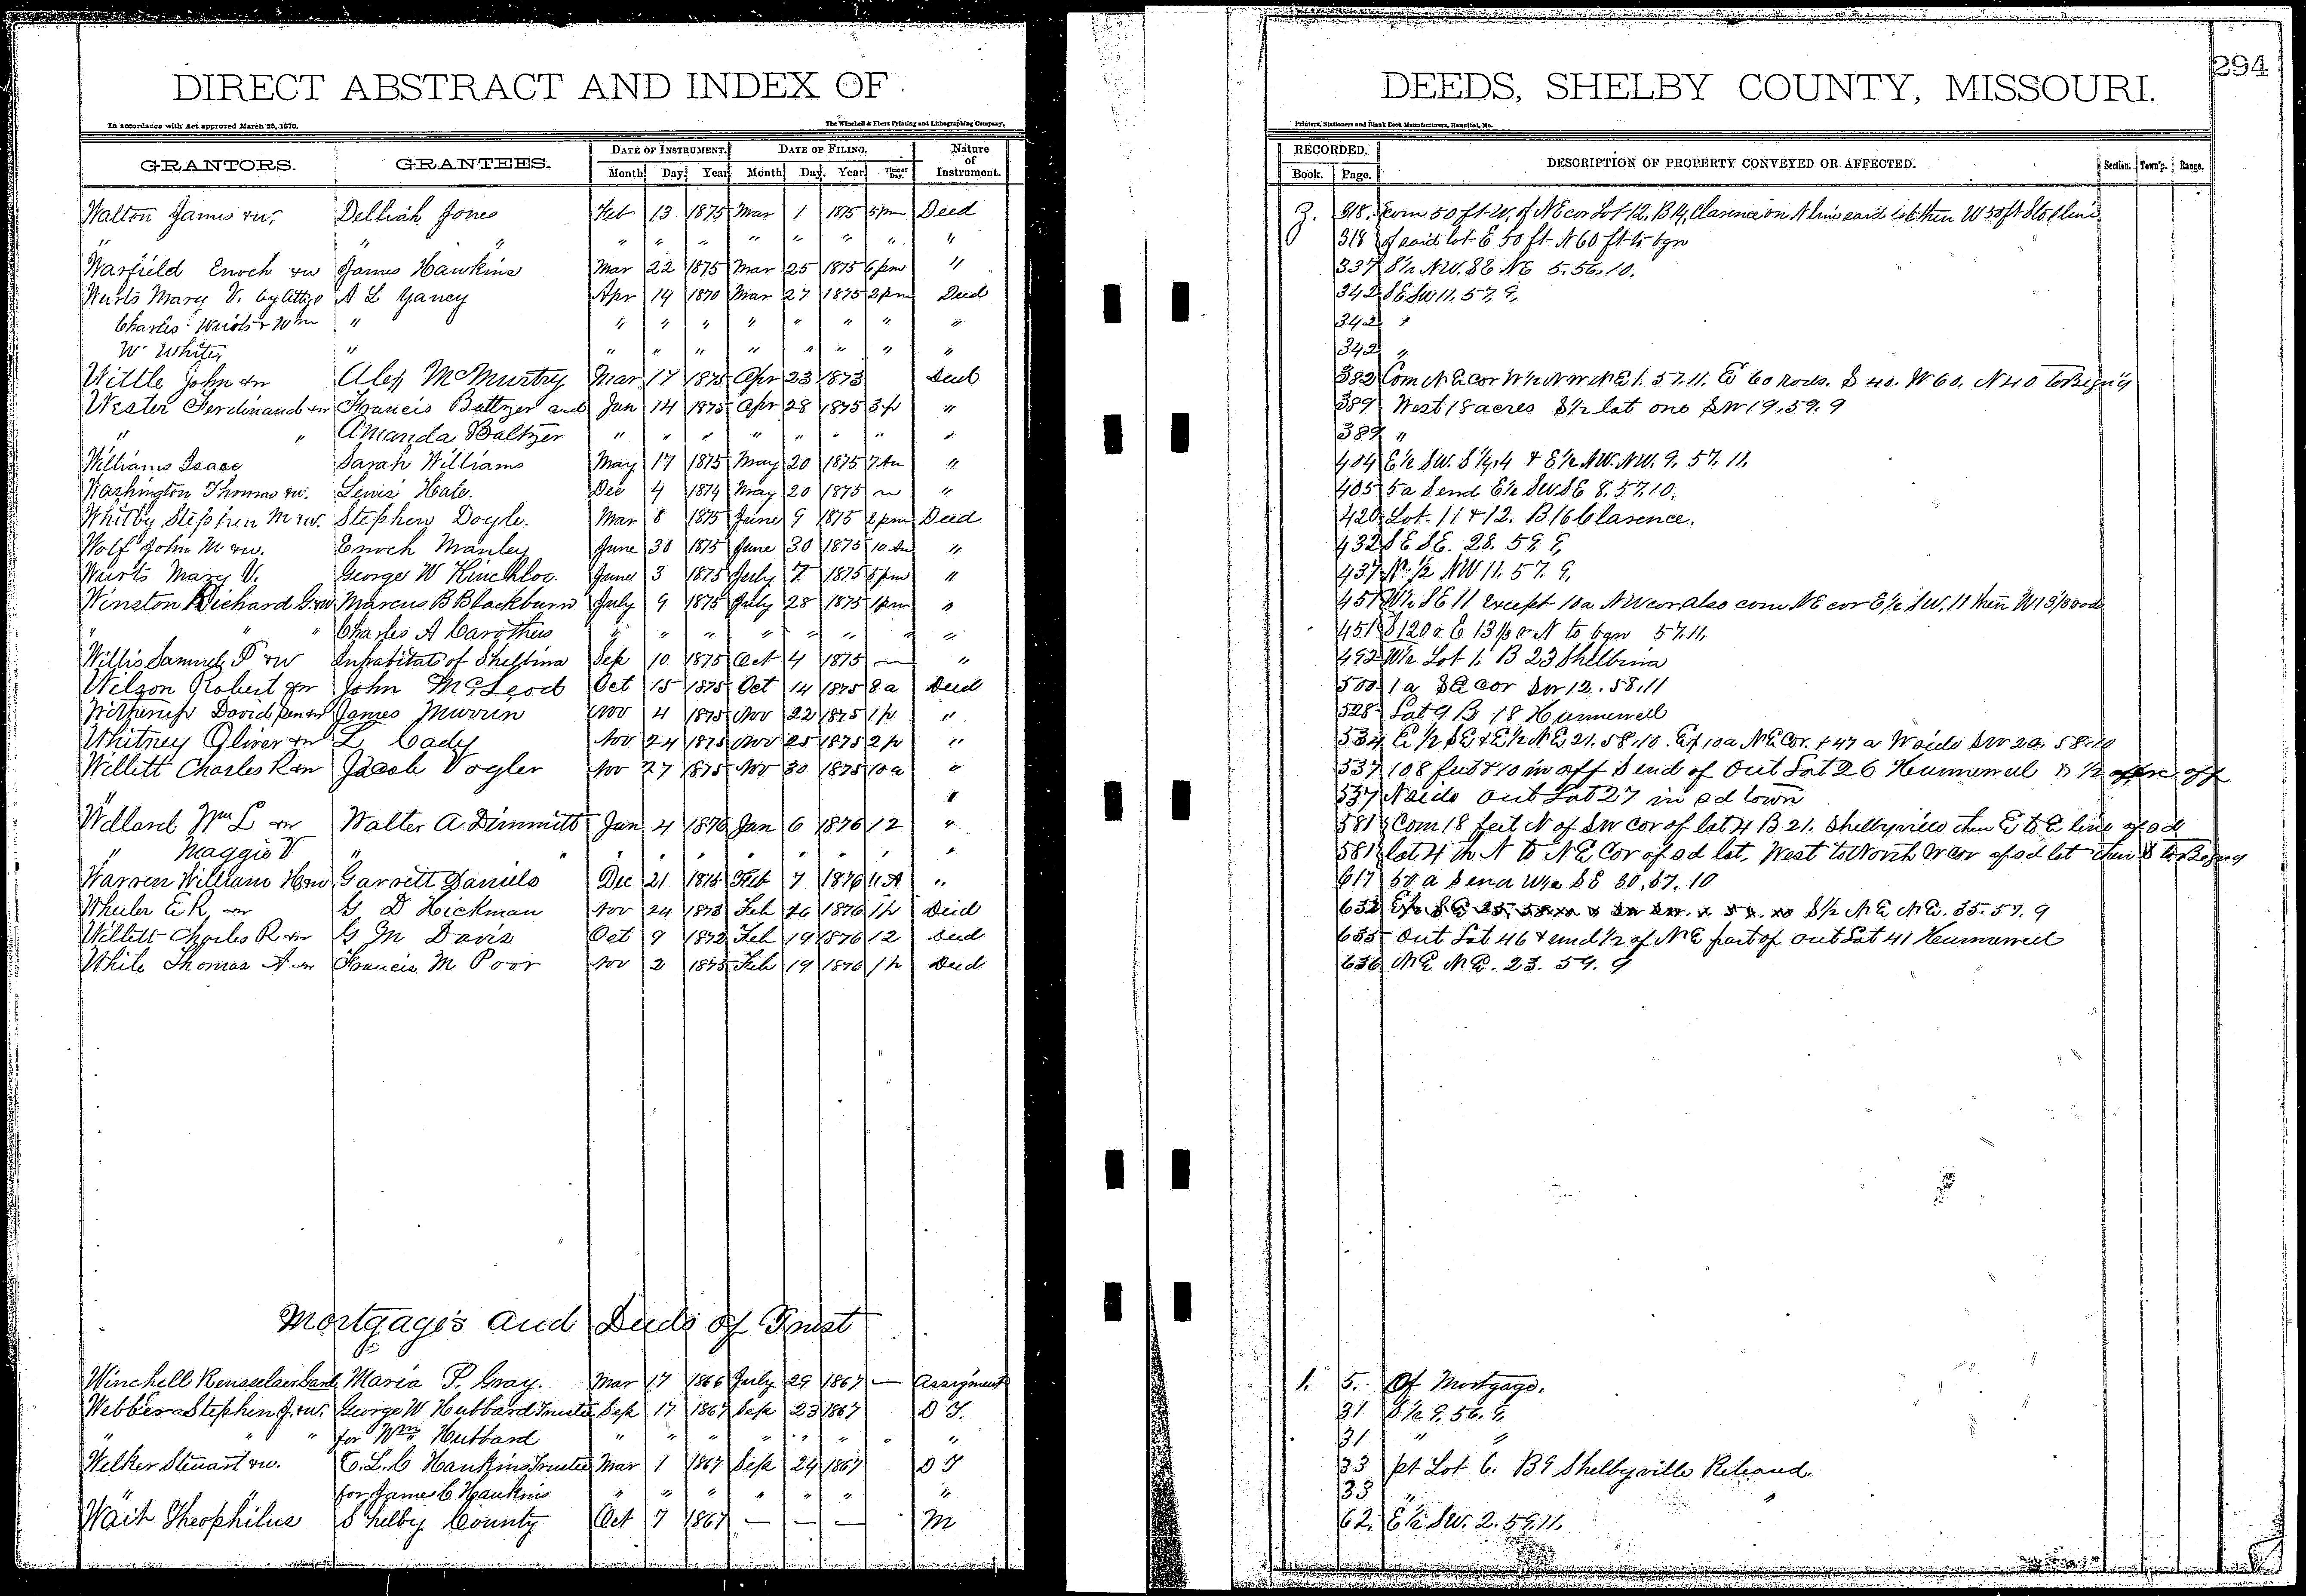 294
DIRECT ABSTRACT AND INDEX OF DEEDS, SHELBY COUNTY, MISSOURI.
In accordance with Act approved March 25, 1870. The Winchell & Ebert Printing and Lithographing Company, Printers, Stationers and Blank Book Manufacturers, Hannibal, Mo.
GRANTORS. GRANTEES. DATE OF INSTRUMENT. DATE OF FILING. Nature of Instrument. RECORDED. DESCRIPTION OF PROPERTY CONVEYED OR AFFECTED. Section. Town'p. Range.
Month Day Year Month Day. Year Time of Day. Book. Page.
Walton James &w, Delliah Jones Feb 13 1875 Mar 1 1875 5pm Deed Z. 318. Com 50 ft W. of NE cor Lot 12. B14, Clarence on N line said lot then W 50 ft S to S line
" " " " " " " " " " " 318 of said lot E 50 ft N 60 ft to bgn
Warfield Enoch &w James Hawkins Mar 22 1875 Mar 25 1875 6pm " 337 S½ NW. SE NE 5. 56. 10.
Wurts Mary V. by Atty A L Yancy Apr 14 1870 Mar 27 1875 2pm Deed 342 SE SW 11. 57. 9,
Charles Wurts & Wm " " " " " " " " " 342 "
W White, " " " " " " " " " 342 "
Wittle John &w Alex McMurtry Mar 17 1875 Apr 23 1873 Deed 382 Com NE Cor W½ NW NE 1. 57. 11. E 60 Rods. S 40. W 60. N 40 to Begn'g
Wester Ferdinand &w Francis Baltzer and Jan 14 1875 Apr 28 1875 3p " 389 West 18 acres S½ lot one SW 19. 59. 9
" " Amanda Baltzer " " " " " " " " 389 "
Williams Isaac Sarah Williams May 17 1875 May 20 1875 7am " 404 E½ SW. S ¼, 4 & E½ NW. NW. 9. 57. 11.
Washington Thomas &w. Lewis Hale. Dec 4 1874 May 20 1875 " 405 5a S end E½ SW SE 8. 57. 10.
Whitby Stephen M &w. Stephen Doyle. Mar 8 1875 June 9 1875 2pm Deed 420 Lot. 11 & 12. B16 Clarence.
Wolf John M &w. Enoch Manley June 30 1875 June 30 1875 10 Am " 432 SE SE. 28. 59. 9,
Wurts Mary V. George W Kinchloe. June 3 1875 July 7 1875 5pm " 437 N. ½ NW 11. 57. 9,
Winston Richard G. &w Marcus B Blackburn July 9 1875 July 28 1875 1pm " 451 W½ SE 11 Except 10a NW cor. also com NE cor E½ SW. 11 then W 13⅓ rods
" " Charles A Carothers " " " " " " " " 451 S 120 r E 13⅓ r N to bgn 57. 11.
Willis Samuel P &w Inhabitats of Shelbina Sep 10 1875 Oct 4 1875 — " 492 W½ Lot 1. B 23 Shelbina
Wilson Robert &w John McLeod Oct 15 1875 Oct 14 1875 8a Deed 500 1a SE cor SW 12. 58. 11
David Sen &w James Murrin Nov 4 1875 Nov 22 1875 1p " 528 Lot 9 B 18 Hunnewell
Whitney Oliver &w L Cady Nov 24 1875 Nov 25 1875 2p " 534 E½ SE & E½ NE 21. 58. 10. Ex 10a NE Cor. & 47 a W side SW 22. 58. 10
Willett Charles R &w Jacob Vogler Nov 27 1875 Nov 30 1875 10a " 537 108 feet & 10 in off S end of Out Lot 26 Hunnewell & ½ acre off
" " 537 N side Out Lot 27 in sd town
Willard Wm L &w Walter A Dimmitt Jan 4 1876 Jan 6 1876 12 " 581 Com 18 feet N of SW Cor of lot 4 B 21. Shelbyville then E to E line of sd
" Maggie V " " " " " " " " " 581 lot 4 th N to NE Cor of sd lot, West to North W cor of sd lot then S to Begng
Warren William H &w Garrett Daniels Dec 21 1875 Feb 7 1876 11 A " 617 50 a S end W½ SE 30. 57. 10
Wheeler E R, &w G D Hickman Nov 24 1873 Feb 16 1876 1p Deed 632 S½ NE NE. 35. 57. 9
Willett Charles R &w G M Davis Oct 9 1872 Feb 19 1876 12 Deed 635 Out Lot 46 & und ½ of NE part of out Lot 41 Hunnewell
White Thomas A &w Francis M Poor Nov 2 1875 Feb 19 1876 1p Deed 636 NE NE. 23. 59. 9
Mortgages and Deeds of Trust
Winchell Rensselaer Maria P. Gray. Mar 17 1866 July 29 1867 — Assignment 1. 5. Of Mortgage.
Webber Stephen J. &w. George W Hubbard Trustee Sep 17 1867 Sep 23 1867 D T. 31 S½ 9. 56. 9,
" " " for Wm Hubbard " " " " " " " " 31 " "
Welker Stewart &w. C. L. C Hankins Trustee Mar 1 1867 Sep 24 1867 D T 33 pt Lot 6. B9 Shelbyville Releasd.
" " for James C Hankins " " " " " " " 33 " "
Wait Theophilus Shelby County Oct 7 1867 — — — M 62. E½ SW. 2. 59. 11.